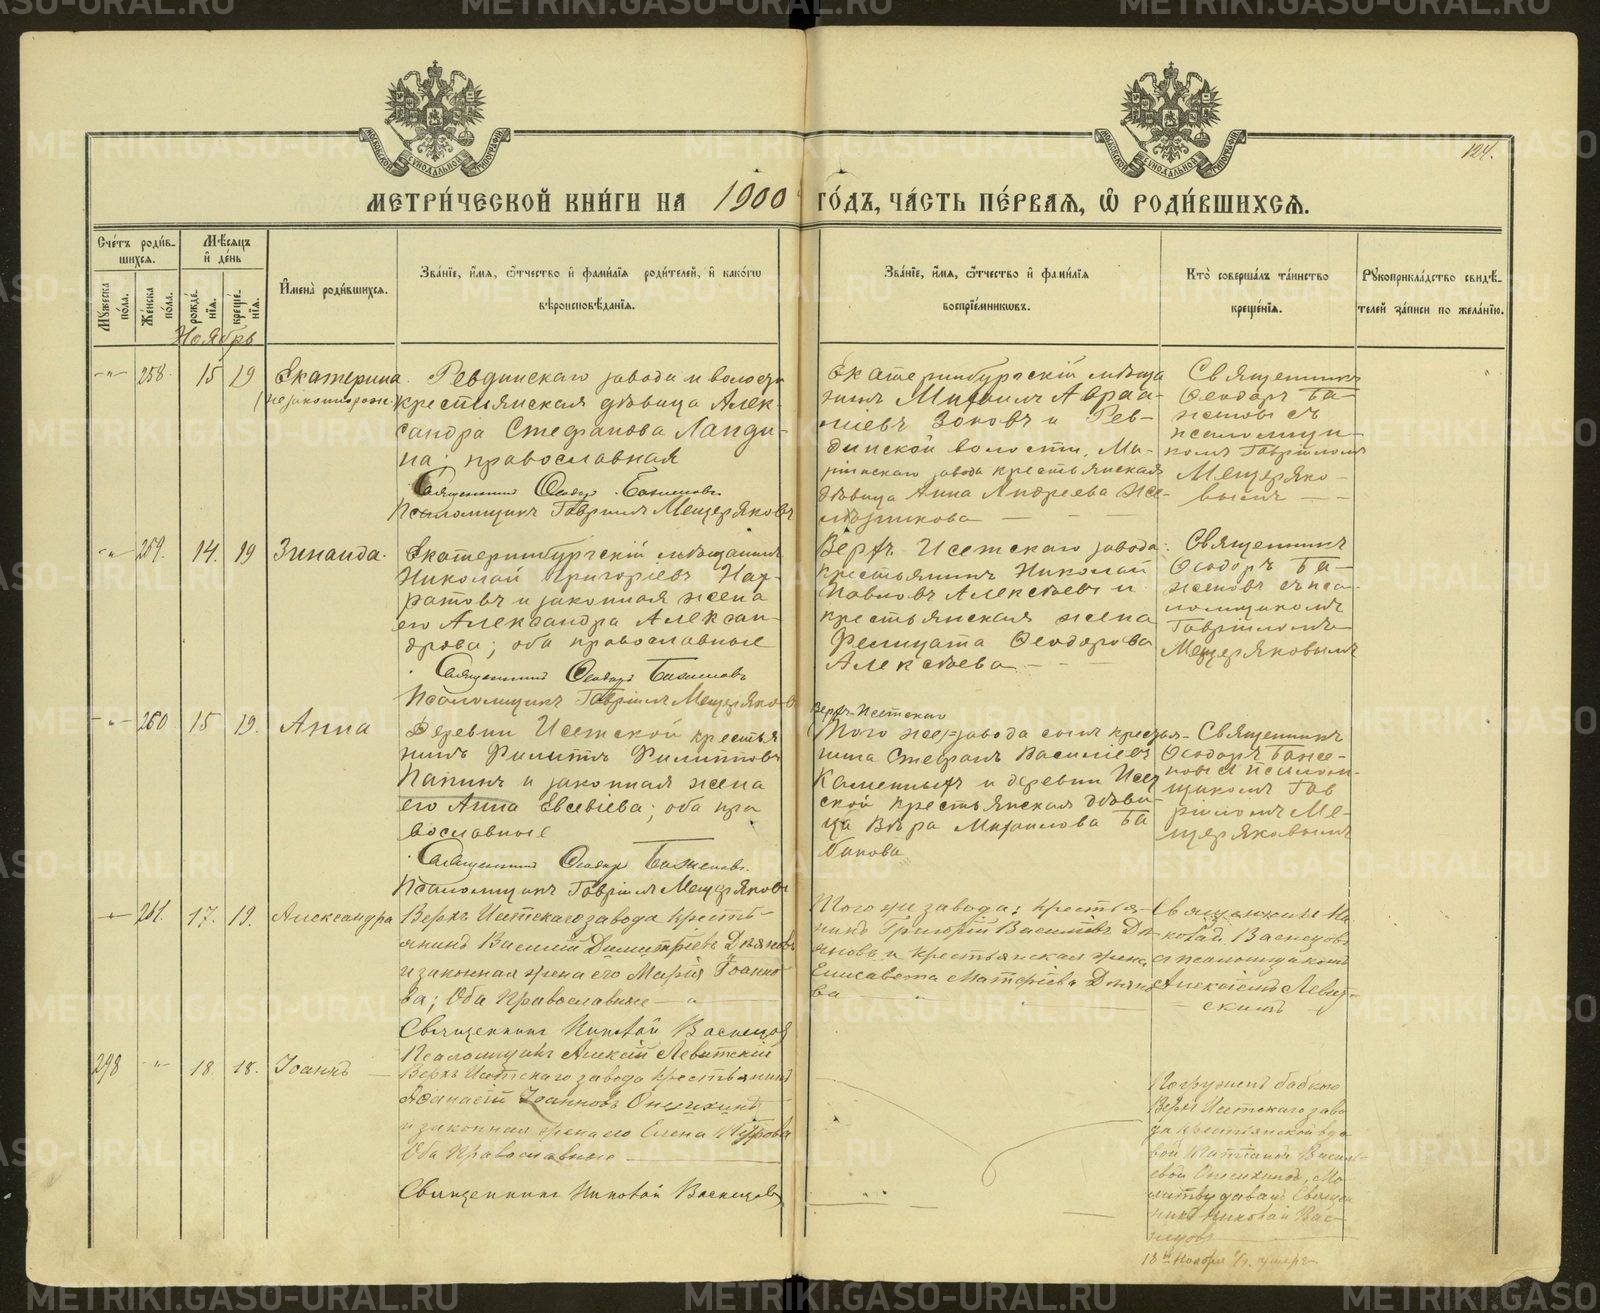 124.
МЕТРИ́ЧЕСКОЙ КНИ́ГИ НА 1900 ГО́ДЪ, ЧА́СТЬ ПЕ́РВАЯ, Ѡ РОДИ́ВШИХСЯ.
Сче́тъ роди́в-
шихся.
Мѣ́сяцъ
и де́нь
Мꙋжеска по́ла.
Же́нска по́ла.
рожде́нїя.
креще́нїя.
И́мена̀ роди́вшихся.
Зва́нїе, и́мя, ѻ҆́тчество и фами́лїя роди́телей, и како́гѡ
вѣроисповѣ́данїя.
Зва́нїе, и́мя, ѻ҆́тчество и фами́лїя
воспрїе́мникѡвъ.
Кто̀ соверша́лъ та́инство
креще́нїя.
Рꙋкоприкла́дство свидѣ́-
телей за́писи по жела́нїю.
Ноябрь
258. 15 19 Екатерина
(незаконнорожд.)
Ревдинскаго завода и волости
крестьянская дѣвица Алек-
сандра Стефанова Ланди-
на; православная
Священникъ Ѳеодоръ Баженовъ.
Псаломщикъ Гавріилъ Мещеряковъ
Екатеринбургскій мѣща
нинъ Михаилъ Авраа-
міевъ Зоковъ и Рев-
динской волости, Ма-
ріинскаго завода крестьянская
дѣвица Анна Андреева Же-
лѣзникова
Священникъ
Ѳеодоръ Ба-
женовъ съ
псаломщи-
комъ Гавріиломъ
Мещеряко-
вымъ
259. 14. 19 Зинаида.
Екатеринбургскій мѣщанинъ
Николай Григоріевъ
и законная жена
его Александра Алексан-
дрова; оба православные
Священникъ Ѳеодоръ Баженовъ
Псаломщикъ Гавріилъ Мещеряковъ
Верхъ Исетскаго завода:
крестьянинъ Николай
Павловъ Алексѣевъ и
крестьянская жена
Фелицата Ѳеодорова
Алексѣева
Священникъ
Ѳеодоръ Ба-
женовъ съ пса-
ломщикомъ
Гавріиломъ
Мещеряковымъ
260 15 19. Анна
Деревни Исетской крестья
нинъ Филиппъ Филипповъ
Папинъ и законная жена
его Анна Евсевіева; оба пра
вославные
Священникъ Ѳеодоръ Баженовъ.
Псаломщикъ Гавріилъ Мещеряковъ
Верхъ-Исетскаго
Того же завода сынъ крестья-
нина Стефанъ Василіевъ
Каменныхъ и деревни Исет
ской крестьянская дѣви-
ца Вѣра Михаилова Ба
бикова
Священникъ
Ѳеодоръ Баже-
новъ псалом-
щикомъ Гав
ріиломъ Ме-
щеряковымъ
261. 17. 19. Александра
Верхъ Исетскаго завода кресть-
янинъ Василій Димитріевъ Дьяковъ
и законная жена его Марія Іоанно
ва; Оба Православные
Священникъ Николай Васнецовъ
Псаломщикъ Алексій Левитскій
Того же завода: крестья-
нинъ Григорій Василіевъ
и крестьянская жена
Елисавета Матфіева
ва
Священникъ Ни
колай Васнецовъ
съ псаломщикомъ
Алексіемъ Левит-
скимъ
298 18. 18. Іоаннъ
Верхъ Исетскаго завода крестьянинъ
Аѳанасій Іоанновъ Онисихинъ
и законная жена его Елена Петрова
Оба Православные
Священникъ Николай Васнецовъ
Погруженъ бабкою
Верхъ Исетскаго заво
да крестьянской вдо
вой Татіаной Василь-
евой Онисихиной, Мо
литву давалъ Священ
никъ Николай Вас-
нецовъ
18го Ноября